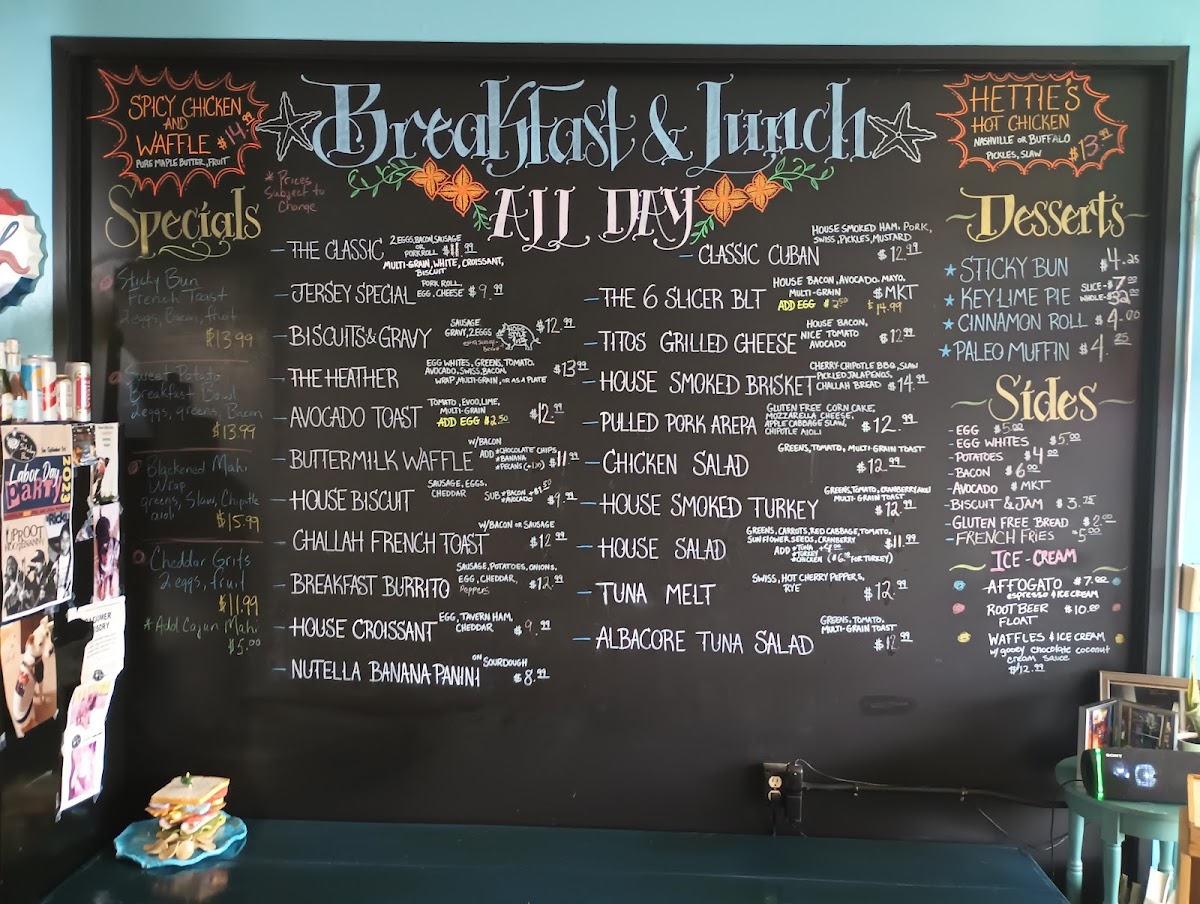 SPICY CHICKEN
AND
WAFFLE $14.99
PURE MAPLE BUTTER, FRUIT
Breakfast & Lunch
ALL DAY
HETTIE'S
HOT CHICKEN
NASHVILLE OR BUFFALO
PICKLES, SLAW $13.99
* Prices
Subject to
Change
Specials
Sticky Bun
French Toast
2 eggs, Bacon, fruit
$13.99
Sweet Potato
Breakfast Bowl
2 eggs, greens, Bacon
$13.99
Blackened Mahi
Wrap
greens, Slaw, Chipotle
aioli
$15.99
Cheddar Grits
2 eggs, fruit
$11.99
* Add Cajun Mahi
$5.00
- THE CLASSIC 2 EGGS, BACON, SAUSAGE
OR
PORKROLL $11.99
MULTI-GRAIN, WHITE, CROISSANT,
BISCUIT
- JERSEY SPECIAL PORK ROLL,
EGG, CHEESE $9.99
- BISCUITS & GRAVY SAUSAGE
GRAVY, 2 EGGS $12.99
- THE HEATHER EGG WHITES, GREENS, TOMATO,
AVOCADO, SWISS, BACON,
WRAP, MULTI-GRAIN, OR AS A PLATE $13.99
- AVOCADO TOAST TOMATO, EVOO, LIME,
MULTI-GRAIN
ADD EGG $2.50 $12.99
- BUTTERMILK WAFFLE W/BACON
ADD * CHOCOLATE CHIPS
* BANANA
* PECANS (+1.50) $11.99
- HOUSE BISCUIT SAUSAGE, EGGS,
CHEDDAR
SUB * BACON +$1.50
* AVOCADO $9.99
- CHALLAH FRENCH TOAST W/BACON OR SAUSAGE
$12.99
- BREAKFAST BURRITO SAUSAGE, POTATOES, ONIONS,
EGG, CHEDDAR,
Peppers $12.99
- HOUSE CROISSANT EGG, TAVERN HAM,
CHEDDAR $9.99
- NUTELLA BANANA PANINI ON SOURDOUGH $8.99
- CLASSIC CUBAN HOUSE SMOKED HAM, PORK,
SWISS, PICKLES, MUSTARD
$12.99
- THE 6 SLICER BLT HOUSE BACON, AVOCADO, MAYO,
MULTI-GRAIN $MKT
ADD EGG $2.50 $14.99
- TITOS GRILLED CHEESE HOUSE BACON,
NICE TOMATO
AVOCADO $12.99
- HOUSE SMOKED BRISKET CHERRY CHIPOTLE BBQ, SLAW
PICKLED JALAPENOS,
CHALLAH BREAD $14.99
- PULLED PORK AREPA GLUTEN FREE CORN CAKE,
MOZZARELLA CHEESE,
APPLE CABBAGE SLAW,
CHIPOTLE AIOLI $12.99
- CHICKEN SALAD GREENS, TOMATO, MULTI-GRAIN TOAST
$12.99
- HOUSE SMOKED TURKEY GREENS, TOMATO, CRANBERRY AIOLI
MULTI-GRAIN TOAST
$12.99
- HOUSE SALAD GREENS, CARROTS, RED CABBAGE, TOMATO,
SUNFLOWER SEEDS, CRANBERRY
ADD * TUNA
* TURKEY
* CHICKEN (FOR TURKEY) $11.99
- TUNA MELT SWISS, HOT CHERRY PEPPERS,
RYE $12.99
- ALBACORE TUNA SALAD GREENS, TOMATO,
MULTI-GRAIN TOAST
$12.99
Desserts
STICKY BUN $4.25
KEY LIME PIE SLICE - $7.00
WHOLE - $32.00
CINNAMON ROLL $4.00
PALEO MUFFIN $4.25
Sides
- EGG $5.00
- EGG WHITES $5.00
- POTATOES $4.00
- BACON $6.00
- AVOCADO $MKT
- BISCUIT & JAM $3.75
- GLUTEN FREE BREAD $2.00
- FRENCH FRIES $5.00
ICE-CREAM
AFFOGATO $7.00
espresso & ICE CREAM
ROOT BEER
FLOAT $10.00
WAFFLES & ICE CREAM
w/gooey chocolate coconut
cream sauce
$12.99
Labor Day
PARTY
2023
UPROOT
Ricky
SONY